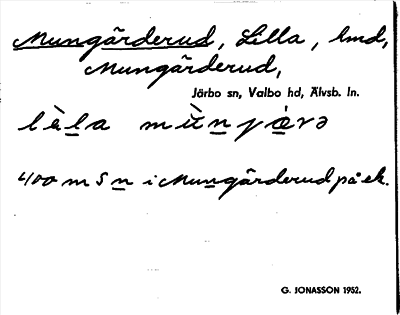 Mungärderud, Lilla, lmd,
Mungärderud,
Järbo sn, Valbo hd, Älvsb. ln.
400 m S n i Mungärderud på ek.
G. JONASSON 1952.